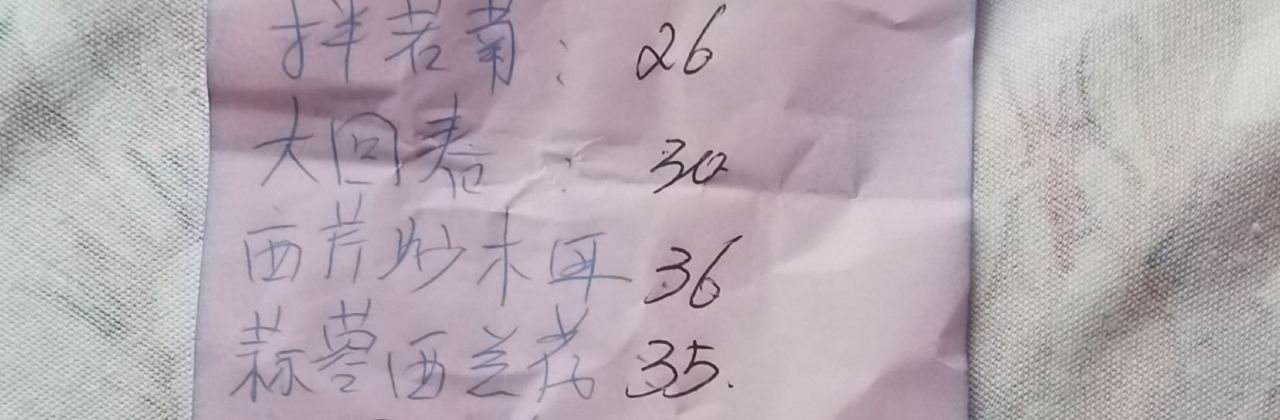 拌若菊：26
大回春：30
西芹炒木耳 36
蒜蓉西兰花 35.